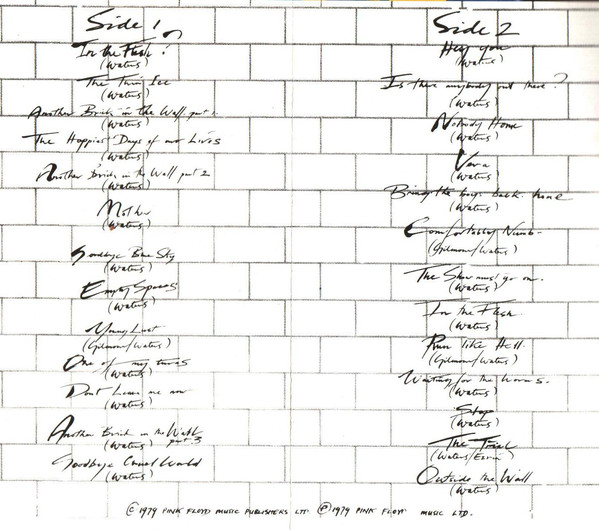 Side 1
In the Flesh ?
(Waters)
The Thin Ice
(Waters)
Another Brick in the Wall part 1.
(Waters)
The Happiest Days of our Lives
(Waters)
Another Brick in the Wall part 2
(Waters)
Mother
(Waters)
Goodbye Blue Sky
(Waters)
Empty Spaces
(Waters)
Young Lust
(Gilmour/Waters)
One of my turns
(Waters)
Dont Leave me now
(Waters)
Another Brick in the Wall
part 3
(Waters)
Goodbye Cruel World
(Waters)
Side 2
Hey you
(Waters)
Is there anybody out there?
(Waters)
Nobody Home
(Waters)
Vera
(Waters)
Bring the boys back home
(Waters)
Comfortably Numb
(Gilmour/Waters)
The Show must go on.
(Waters)
In the Flesh
(Waters)
Run like Hell.
(Gilmour/Waters)
Waiting for the Worms.
(Waters)
Stop
(Waters)
The Trial
(Waters/Ezrin)
Outside the Wall
(Waters)
© 1979 PINK FLOYD MUSIC PUBLISHERS LTD. ℗ 1979 PINK FLOYD MUSIC LTD.